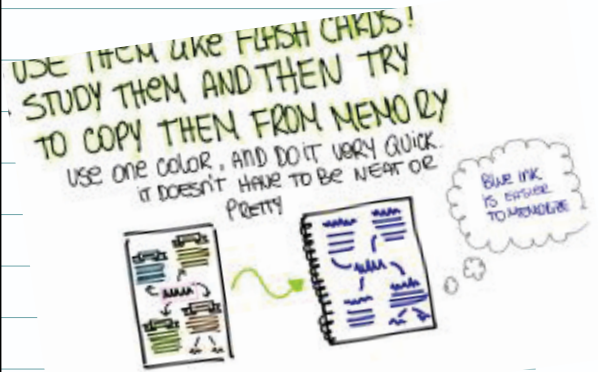 USE THEM LIKE FLASH CARDS!
STUDY THEM AND THEN TRY
TO COPY THEM FROM MEMORY
USE ONE COLOR, AND DO IT VERY QUICK.
IT DOESN'T HAVE TO BE NEAT OR
PRETTY
BLUE INK
IS EASIER
TO MEMORIZE